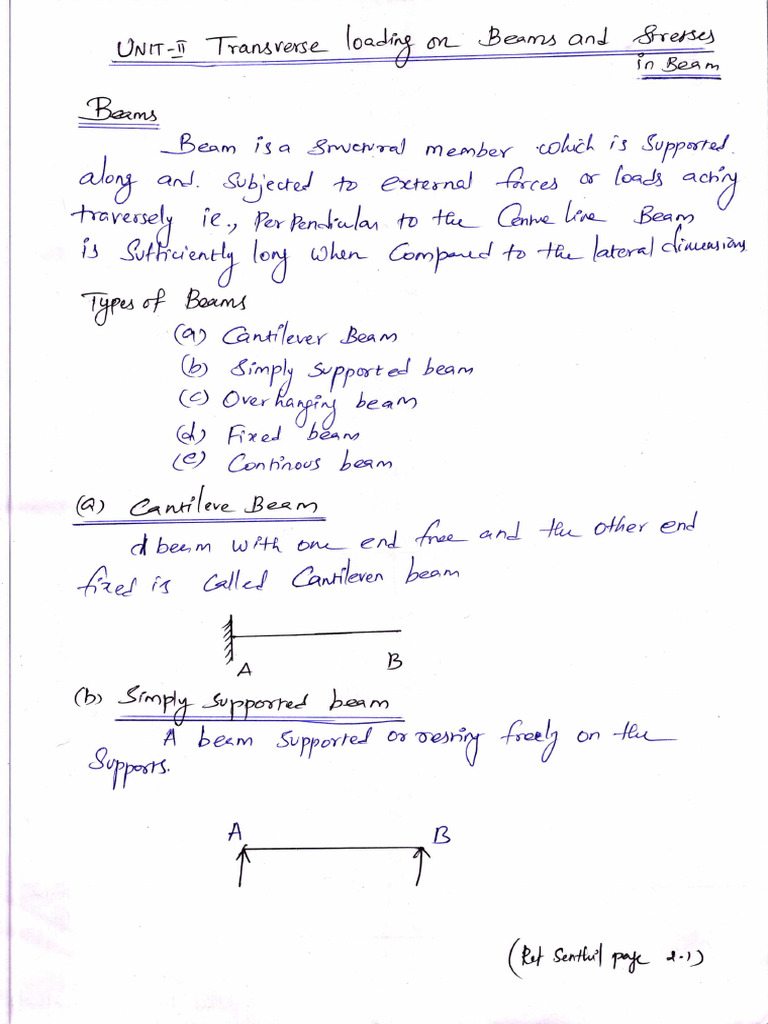 UNIT-II Transverse loading on Beams and Stresses
in Beam
Beams
Beam is a Structural member which is Supported
along and. Subjected to external forces or loads acting
traversely ie., Perpendicular to the Centre line Beam
is Sufficiently long when Compared to the lateral dimensions
Types of Beams
(a) Cantilever Beam
(b) Simply supported beam
(c) Overhanging beam
(d) Fixed beam
(e) Continous beam
(a) Cantileve Beam
A beam with one end free and the other end
fixed is called Cantilever beam
A B
(b) Simply supported beam
A beam supported or resting freely on the
Supports.
A B
(Ref Senthil page 2.1)